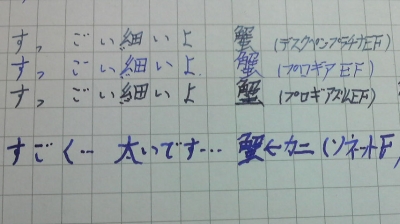 すっごい細いよ 蟹 (デスクペンプラチナEF)
すっごい細いよ 蟹 (プロギアEF)
すっごい細いよ 蟹 (プロギアスリムEF)
すごく… 太いです… 蟹←カニ (ソネットF